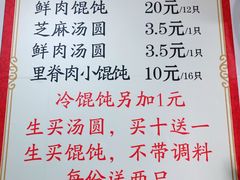 鲜肉馄饨 20元/12只
芝麻汤圆 3.5元/1只
鲜肉汤圆 3.5元/1只
里脊肉小馄饨 10元/16只
冷馄饨另加1元
生买汤圆，买十送一
生买馄饨，不带调料
每份送两只